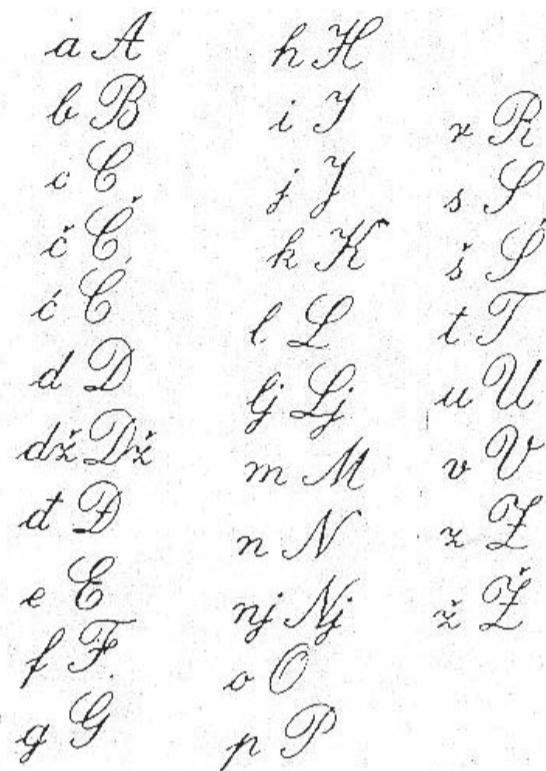 a A
b B
c C
č Č
ć Ć
d D
dž Dž
đ Đ
e E
f F
g G
h H
i I
j J
k K
l L
lj Lj
m M
n N
nj Nj
o O
p P
r R
s S
š Š
t T
u U
v V
z Z
ž Ž